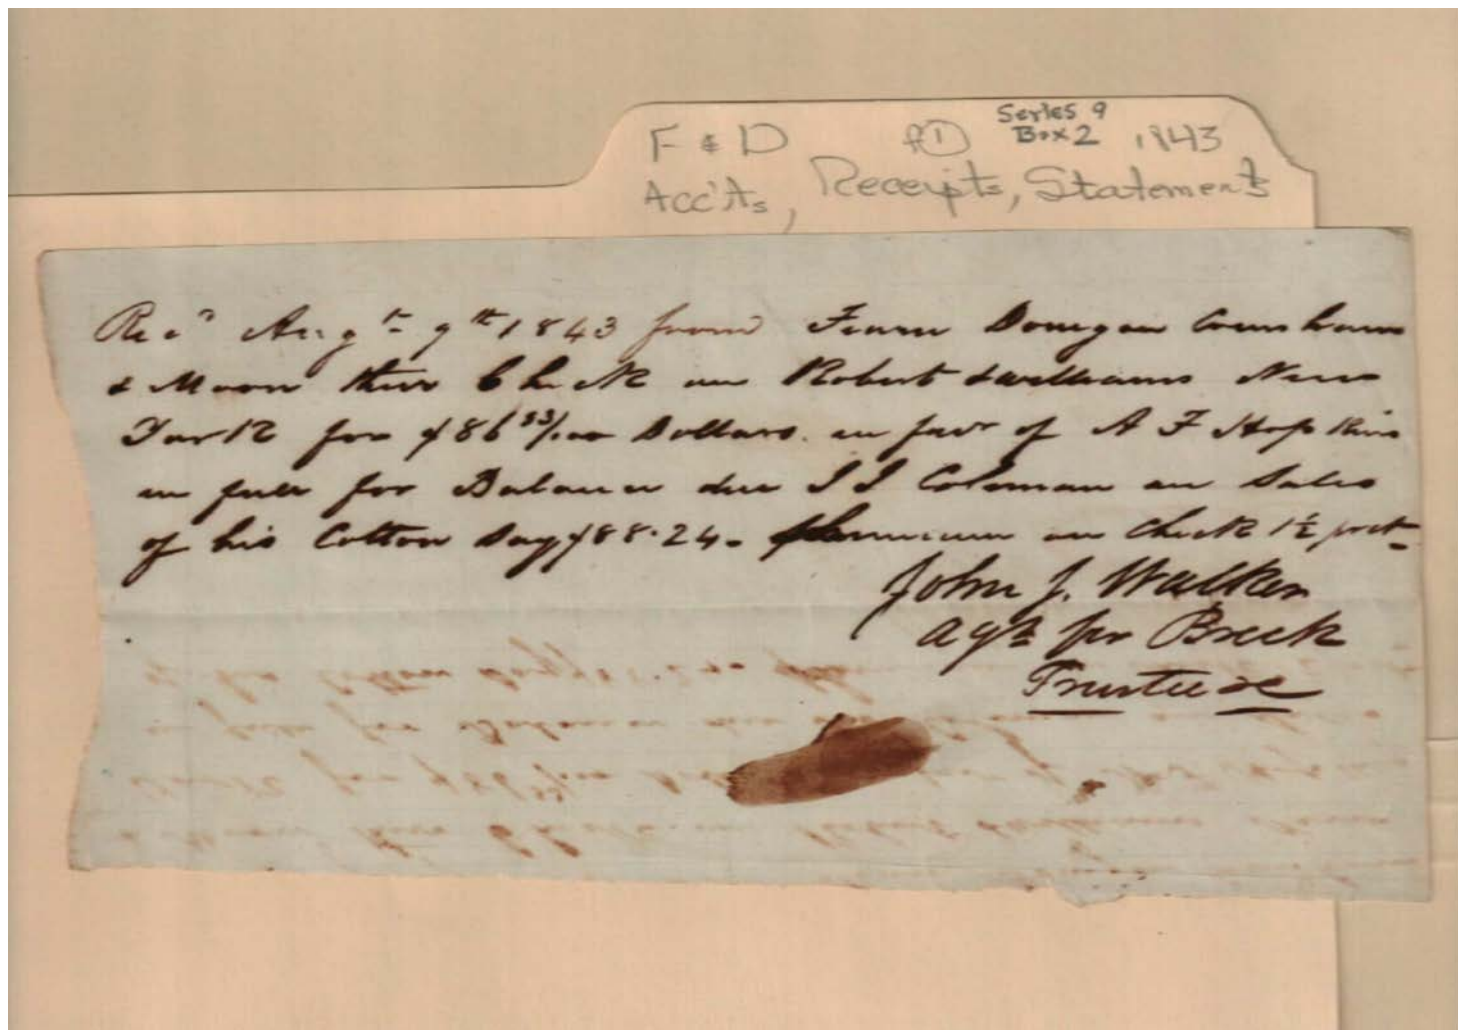 F & D f① Series 9
Box 2 1843
Acc'ts, Receipts, Statements
Rec'd Augt 9th 1843 from Fearn Donegan
& Moon their Check on Robert & Williams New
York for $86 93/100 Dollars in favr of A F Hopkins
in full for Balance due J J Coleman on Sales
of his Cotton Say $88.24. premium on check 1½ prct
John J. Walker
agt for Breck
Trustee &c